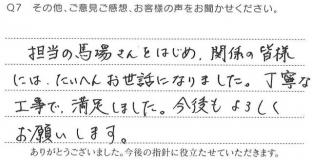 Q7 その他、ご意見ご感想、お客様の声をお聞かせください。
担当の馬場さんをはじめ、関係の皆様
には、たいへんお世話になりました。丁寧な
工事で、満足しました。今後もよろしく
お願いします。
ありがとうございました。今後の指針に役立たせていただきます。